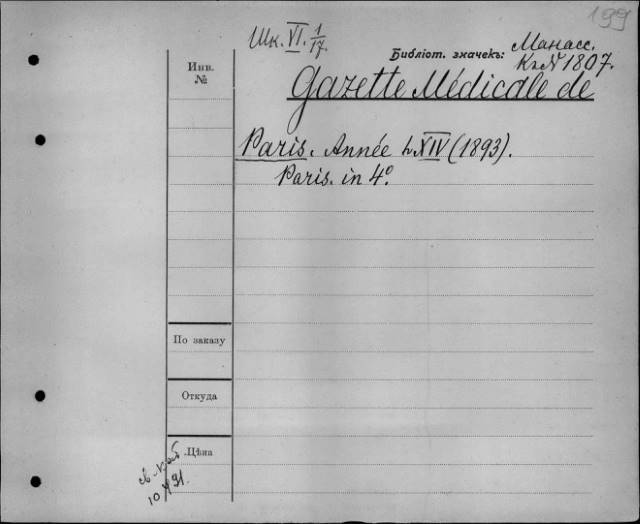 199
Шк. VI. 1/17.
Библіот. значекъ: Манасс.
К. № 1807.
Инв.
№
Gazette Médicale de
Paris. Année LXIV (1893).
Paris. in 4°.
По заказу
Откуда
Цѣна